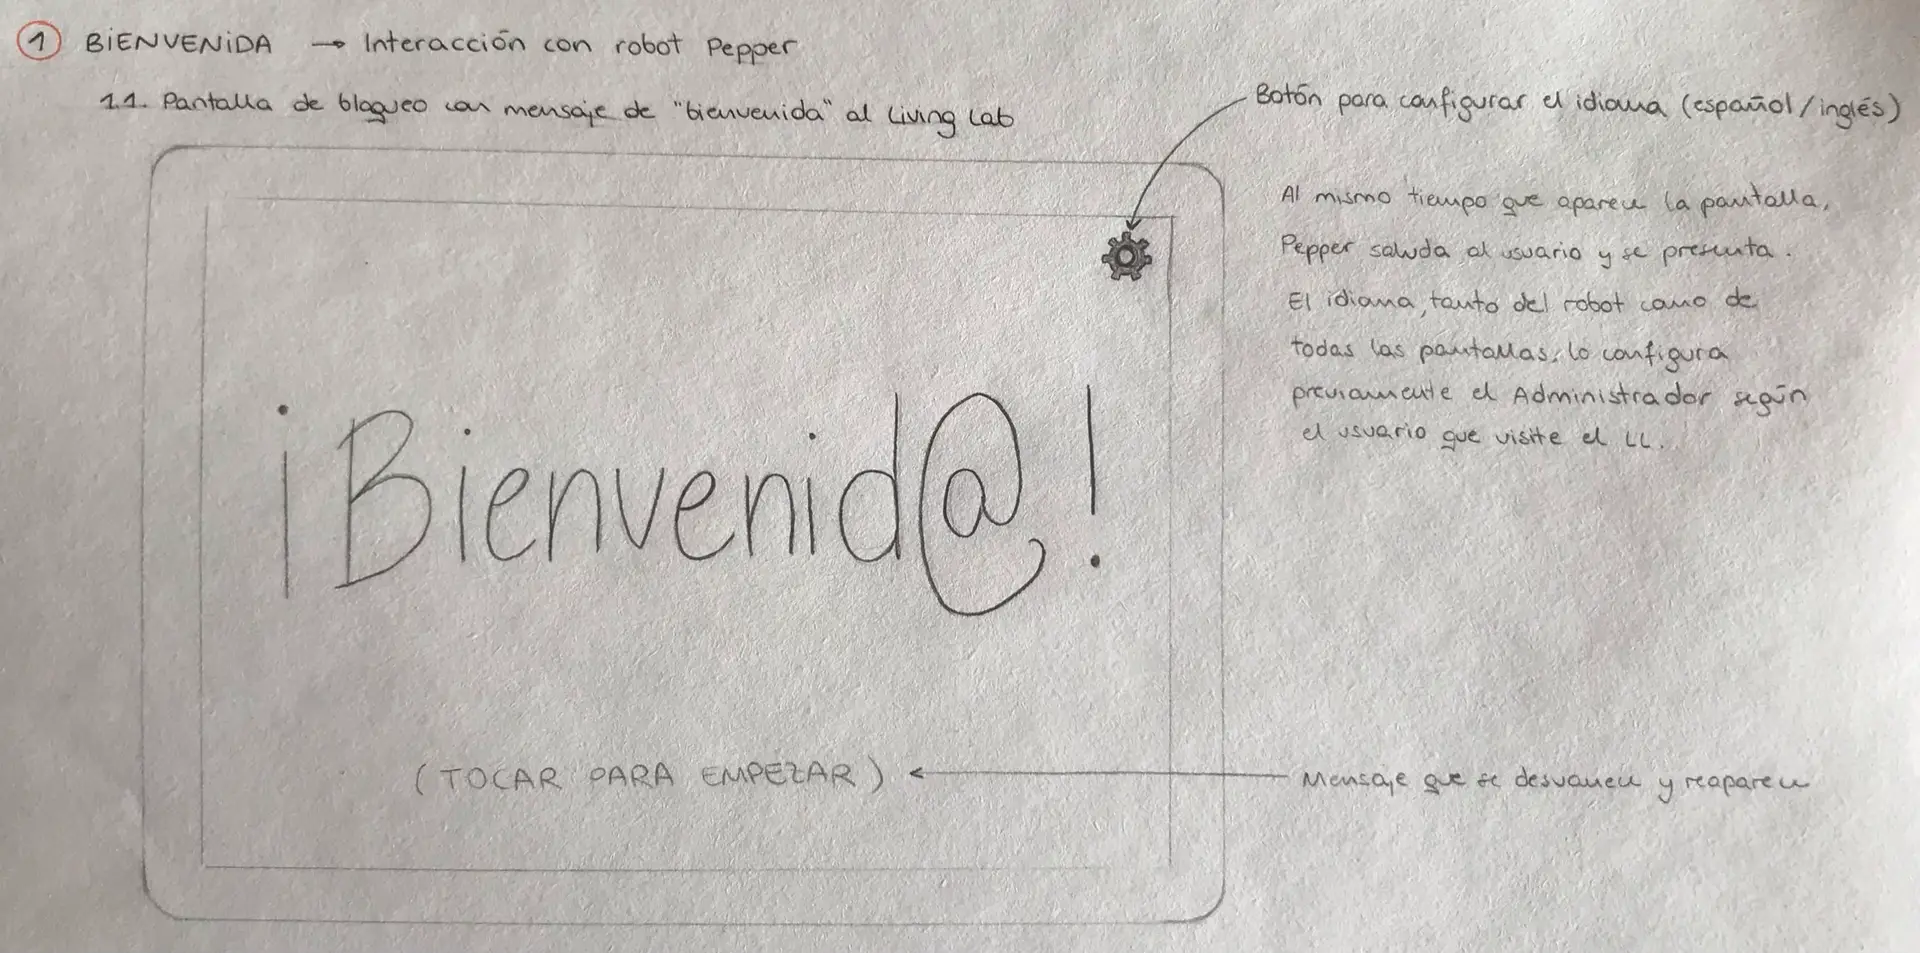 1 BIENVENIDA → Interacción con robot Pepper
1.1. Pantalla de bloqueo con mensaje de "bienvenida" al Living Lab
Botón para configurar el idioma (español/inglés)
Al mismo tiempo que aparece la pantalla,
Pepper saluda al usuario y se presenta.
El idioma, tanto del robot como de
todas las pantallas, lo configura
previamente el Administrador según
el usuario que visite el LL.
¡Bienvenid@!
(TOCAR PARA EMPEZAR)
Mensaje que se desvanece y reaparece